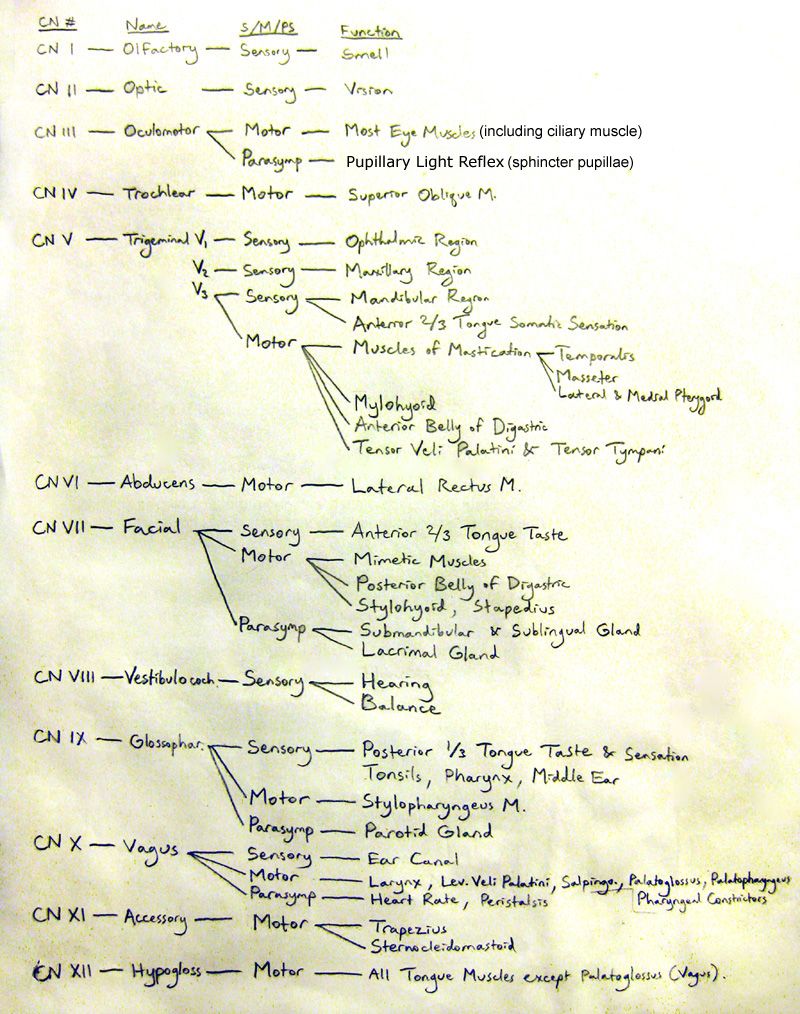 CN # Name S/M/PS Function
CN I — Olfactory — Sensory — Smell
CN II — Optic — Sensory — Vision
CN III — Oculomotor — Motor — Most Eye Muscles (including ciliary muscle)
Parasymp — Pupillary Light Reflex (sphincter pupillae)
CN IV — Trochlear — Motor — Superior Oblique M.
CN V — Trigeminal V1 — Sensory — Ophthalmic Region
V2 — Sensory — Maxillary Region
V3 Sensory Mandibular Region
Anterior 2/3 Tongue Somatic Sensation
Motor Muscles of Mastication Temporalis
Masseter
Lateral & Medial Pterygoid
Mylohyoid
Anterior Belly of Digastric
Tensor Veli Palatini & Tensor Tympani
CN VI — Abducens — Motor — Lateral Rectus M.
CN VII — Facial Sensory — Anterior 2/3 Tongue Taste
Motor Mimetic Muscles
Posterior Belly of Digastric
Stylohyoid, Stapedius
Parasymp Submandibular & Sublingual Gland
Lacrimal Gland
CN VIII — Vestibulococh. — Sensory Hearing
Balance
CN IX — Glossophar. Sensory — Posterior 1/3 Tongue Taste & Sensation
Tonsils, Pharynx, Middle Ear
Motor — Stylopharyngeus M.
Parasymp — Parotid Gland
CN X — Vagus Sensory — Ear Canal
Motor — Larynx, Lev. Veli Palatini, Salpingo., Palatoglossus, Palatopharyngeus
Parasymp — Heart Rate, Peristalsis Pharyngeal Constrictors
CN XI — Accessory — Motor Trapezius
Sternocleidomastoid
CN XII — Hypogloss — Motor — All Tongue Muscles except Palatoglossus (Vagus).